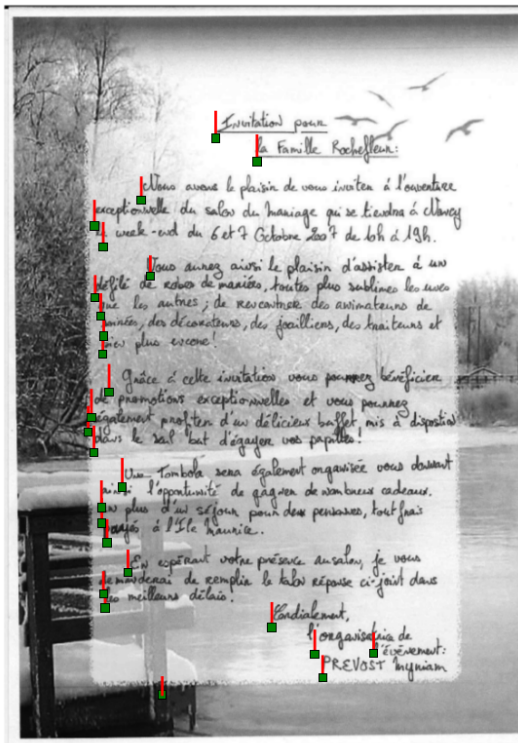 Invitation pour
la Famille Rochefleur:
Nous avons le plaisir de vous inviter à l'ouverture
exceptionnelle du salon du mariage qui se tiendra à Nancy
le week-end du 6 et 7 Octobre 2007 de 10h à 19h.
Vous aurez aussi le plaisir d'assister à un
défilé de robes de mariées, toutes plus sublimes les unes
que les autres ; de rencontrer des animateurs de
soirées, des décorateurs, des joailliers, des traiteurs et
bien plus encore!
Grâce à cette invitation vous pourrez bénéficier
de promotions exceptionnelles et vous pourrez
également profiter d'un délicieux buffet, mis à dispostion
dans le seul but d'égayer vos papilles!
Une Tombola sera également organisée vous donnant
ainsi l'opportunité de gagner de nombreux cadeaux.
en plus d'un séjour pour deux personnes, tout frais
payés à l'Ile Maurice..
En espérant votre présence au salon, je vous
demanderai de remplir le talon réponse ci-joint dans
les meilleurs délais.
Cordialement,
l'organisatrice de
l'évènement:
PREVOST Myriam